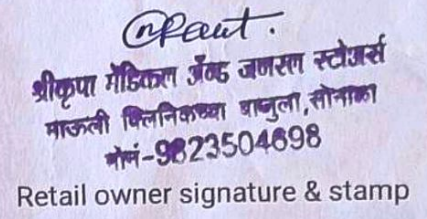 श्रीकृपा मेडिकल अँण्ड जनरल स्टोअर्स
माऊली क्लिनिकच्या बाजुला, सोनाळा
मोमं-9823504698
Retail owner signature & stamp